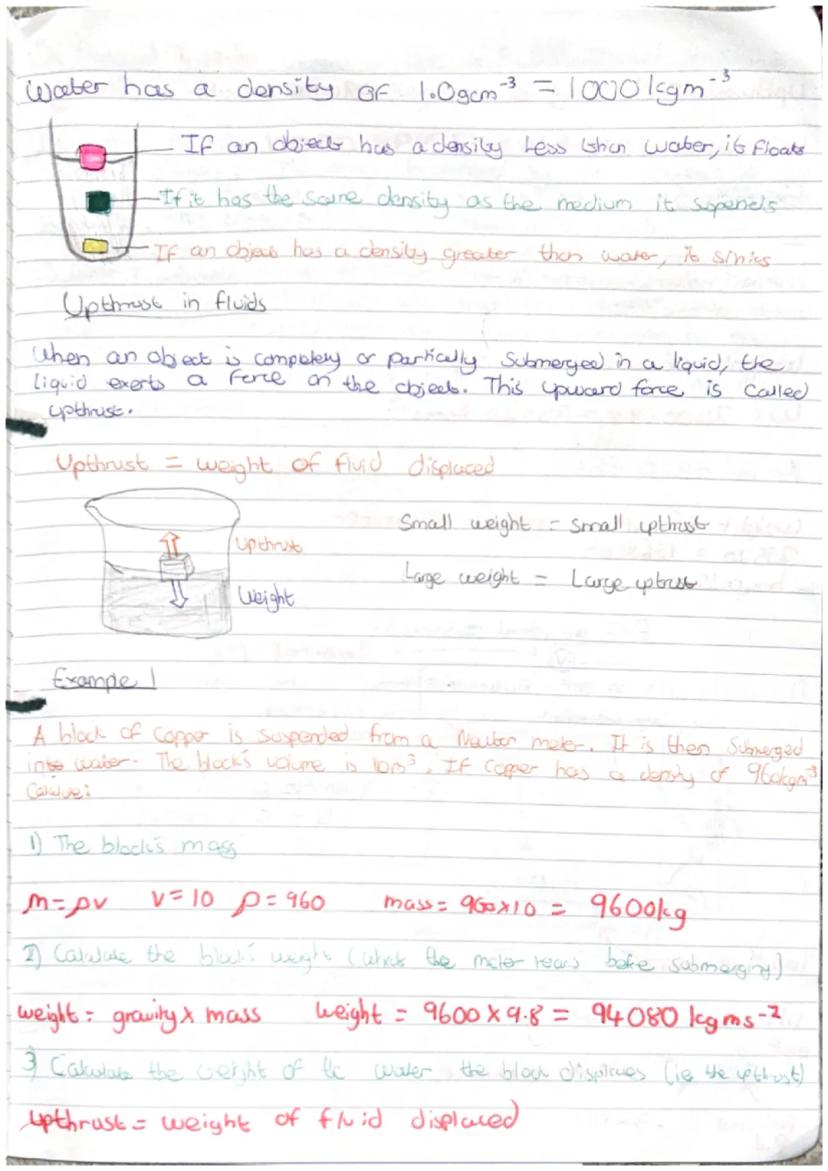 Water has a density of 1.0gcm⁻³ = 1000kgm⁻³
If an object has a density less than water, it floats
If it has the same density as the medium it supends
If an object has a density greater than water, it sinks
Upthrust in fluids
When an object is competely or partically submerged in a liquid, the
liquid exerts a force on the object. This upward force is called
upthrust.
Upthrust = weight of fluid displaced
Small weight = small upthrust
Upthrust
Large weight = Large uptrust
Weight
Example 1
A block of copper is suspended from a Newton meter. It is then submerged
into water. The block's volume is 10m³. If copper has a density of 960kgm³
1) The block's mass
m=ρv v=10 ρ=960 mass= 960x10 = 9600kg
2) Calculate the block's weight ( the meter reads before submerging)
weight = gravity x mass weight = 9600 x 9.8 = 94080 kgms⁻²
3) Calculate the weight of the water the block displaces (ie the upthrust)
upthrust = weight of fluid displaced